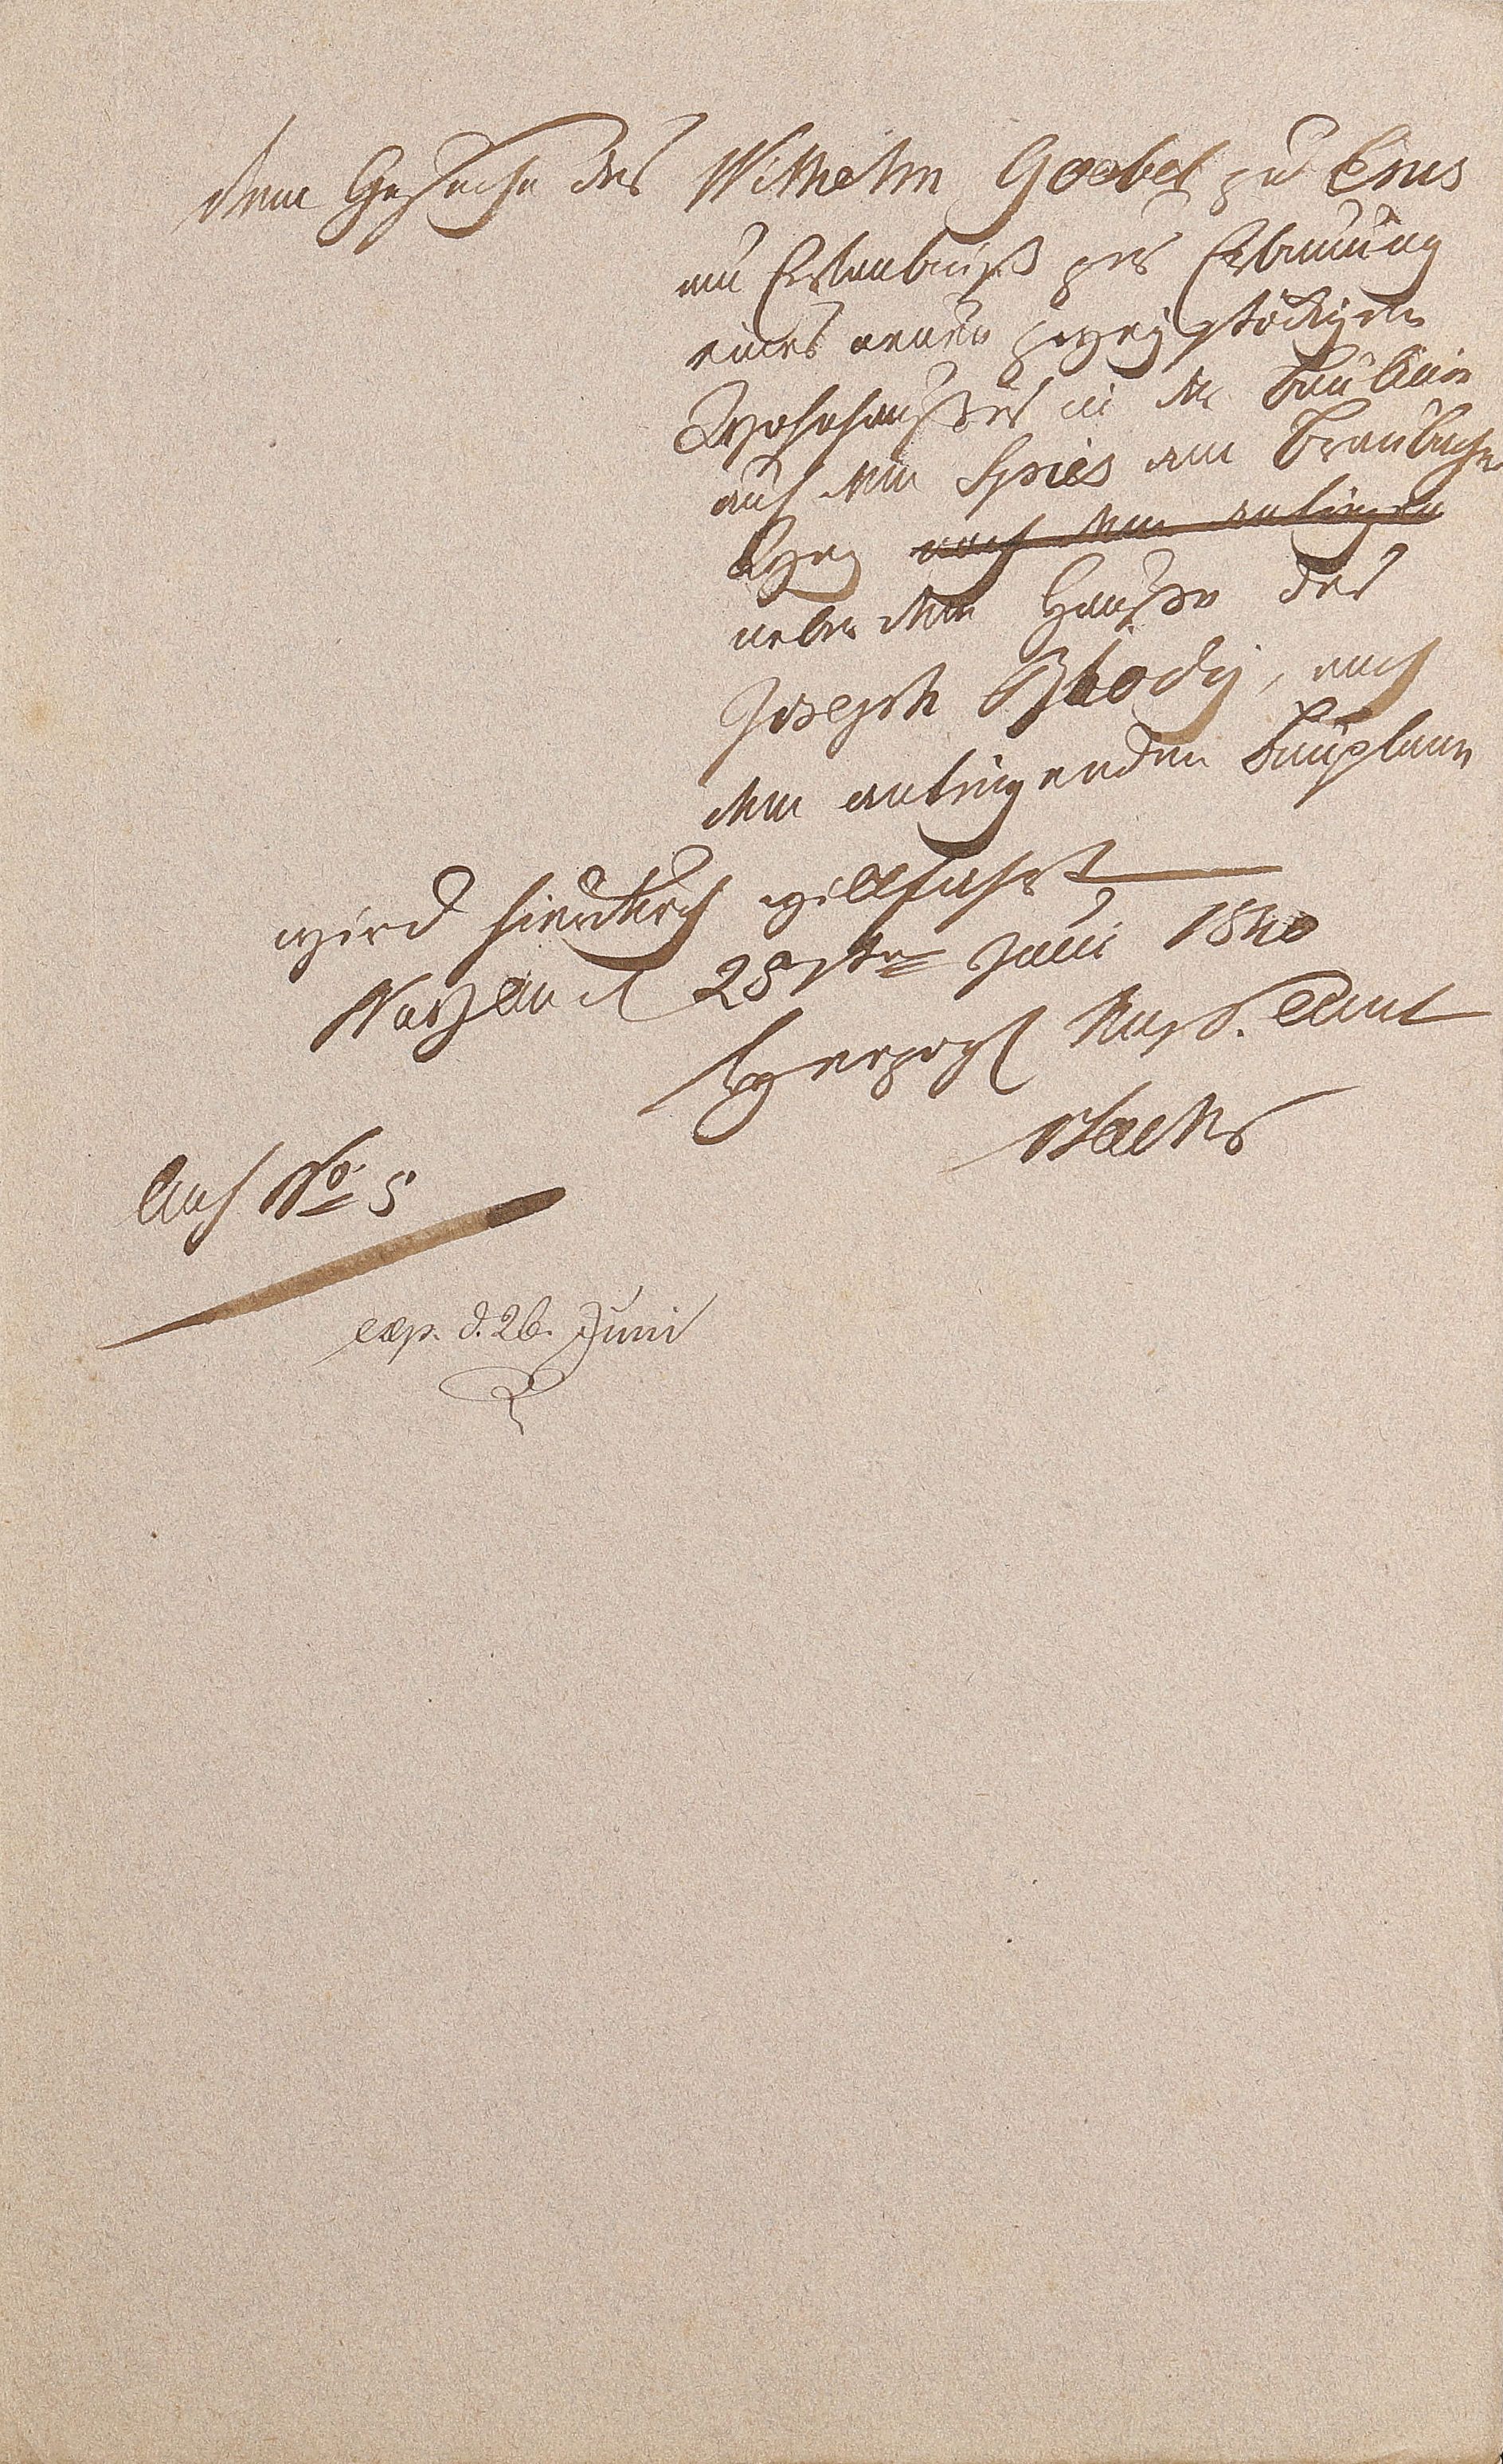 dem Gesuche des Wilhelm Goebel zu Ems
um Erlaubniß zur Erbauung
eines neuen zweystöckigen
Wohnhauses in der Baulinie
auf dem Spies am Braubacher
Weg nach dem anliegen
neben dem Hause des
Joseph, nach
dem anliegenden Bauplane
wird hierdurch willfahrt
Nassau d 25ten Juni 1840
Herzogl Nass. Amt
Anl No 5
exp. d. 26. Juni